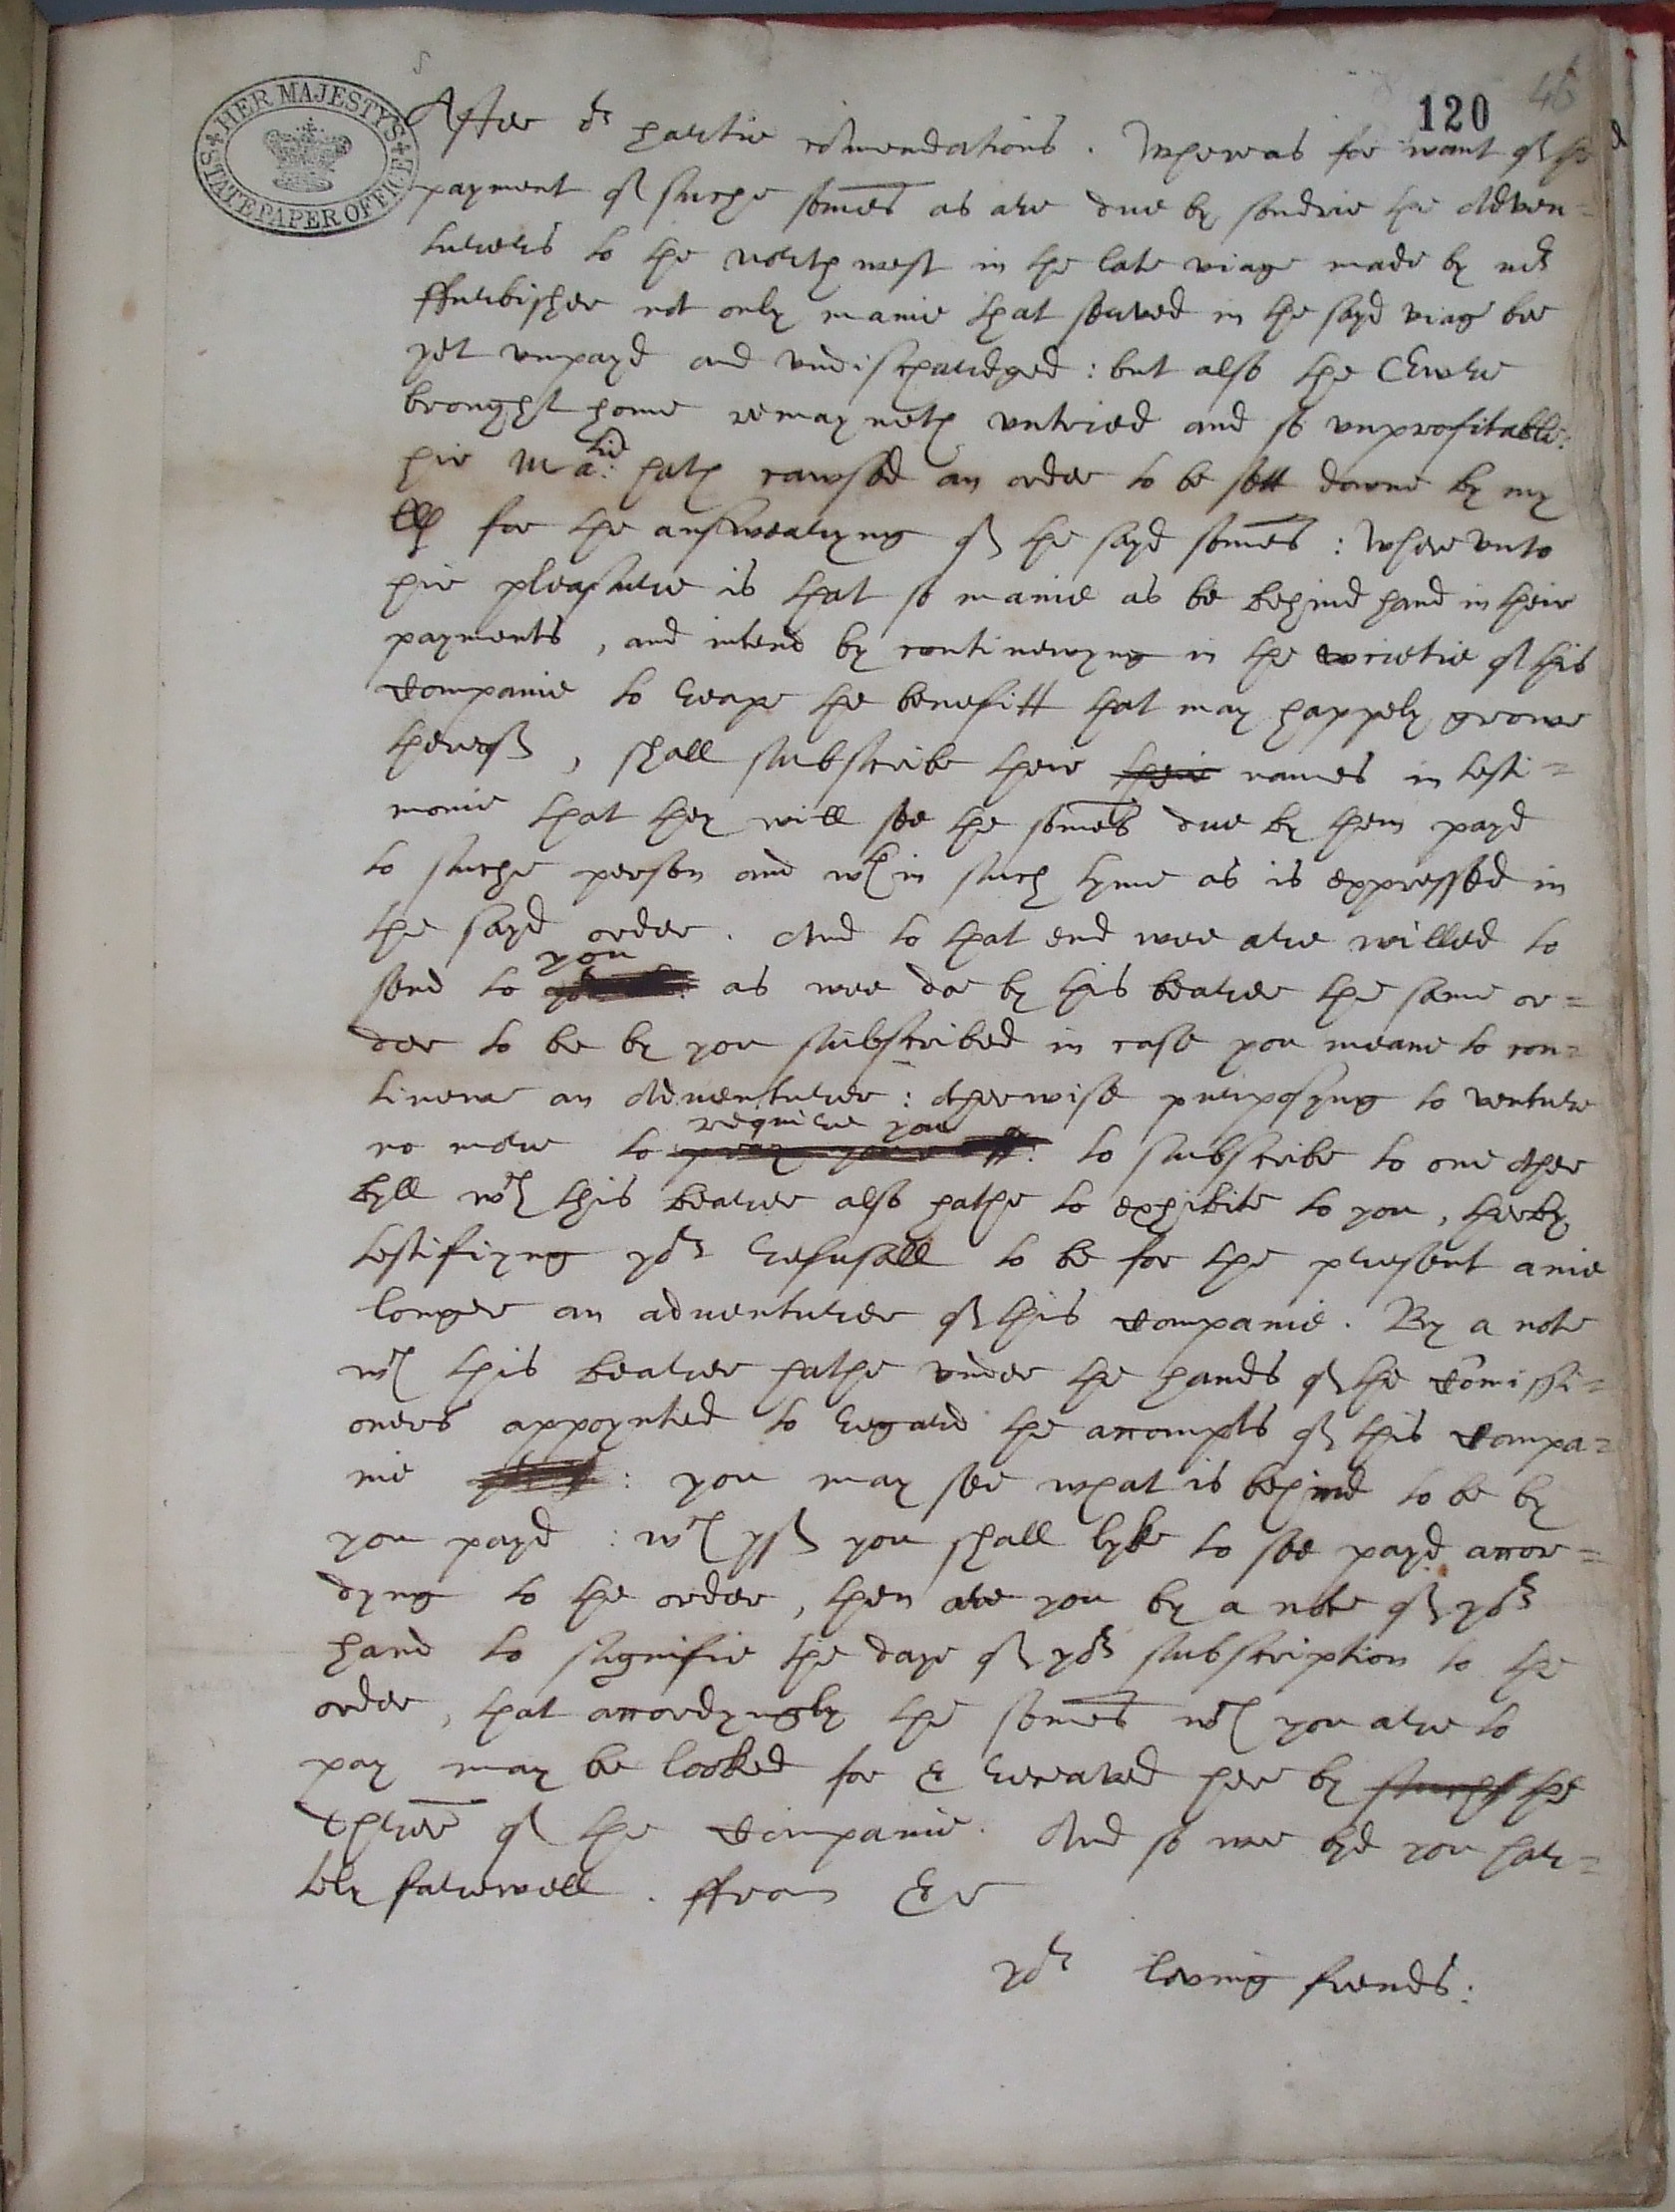 HER MAJESTY'S STATE PAPER OFFICE
120 46
After or hartie comendations. Whereas for want of the
payment of suche somes as are due by sondrie the Adven=
turers to the north west in the late viage made by mr
ffurbisher not only manie that served in the sayd viag be
yet unpayd and undischardged: but also the Ewre
browght home remayneth untried and so unprofitable:
hir Ma:tie hath cawsed an order to be sett downe by my
LL for the answearyng of the sayd somes: wherunto
hir pleasure is that so manie as be behind hand in their
payments, and intend by continewyng in the societie of this
companie to reape the benefitt that may happely growe
therof, shall subscribe their their names in testi=
monie that they will see the somes due by them payd
to suche person and wthin such tyme as is expressed in
the sayd order. And to that end wee are willed to
you
send to as wee do by this bearer the same or=
der to be by you subscribed in case you meane to con=
tinew an Adventurer: otherwise purposyng to venture
require you
no more to pray to subscribe to one other
byll wch this bearer also hathe to exhibite to you, therby
testifiyng yor refusall to be for the present anie
longer an adventurer of this companie. By a note
wch this bearer hathe under the hands of the comissi=
oners appoynted to regard the accompts of this compa=
nie : you may see what is behind to be by
you payd: wch yf you shall lyke to see payd accor=
dyng to the order, then are you by a note of yor
hand to signifie the daye of yor subscription to the
order, that accordyngly the somes wch you are to
pay may be looked for & receaved her by such the
of the companie. And so wee byd you har=
tely farewell. ffrom &c
yor loving frends: